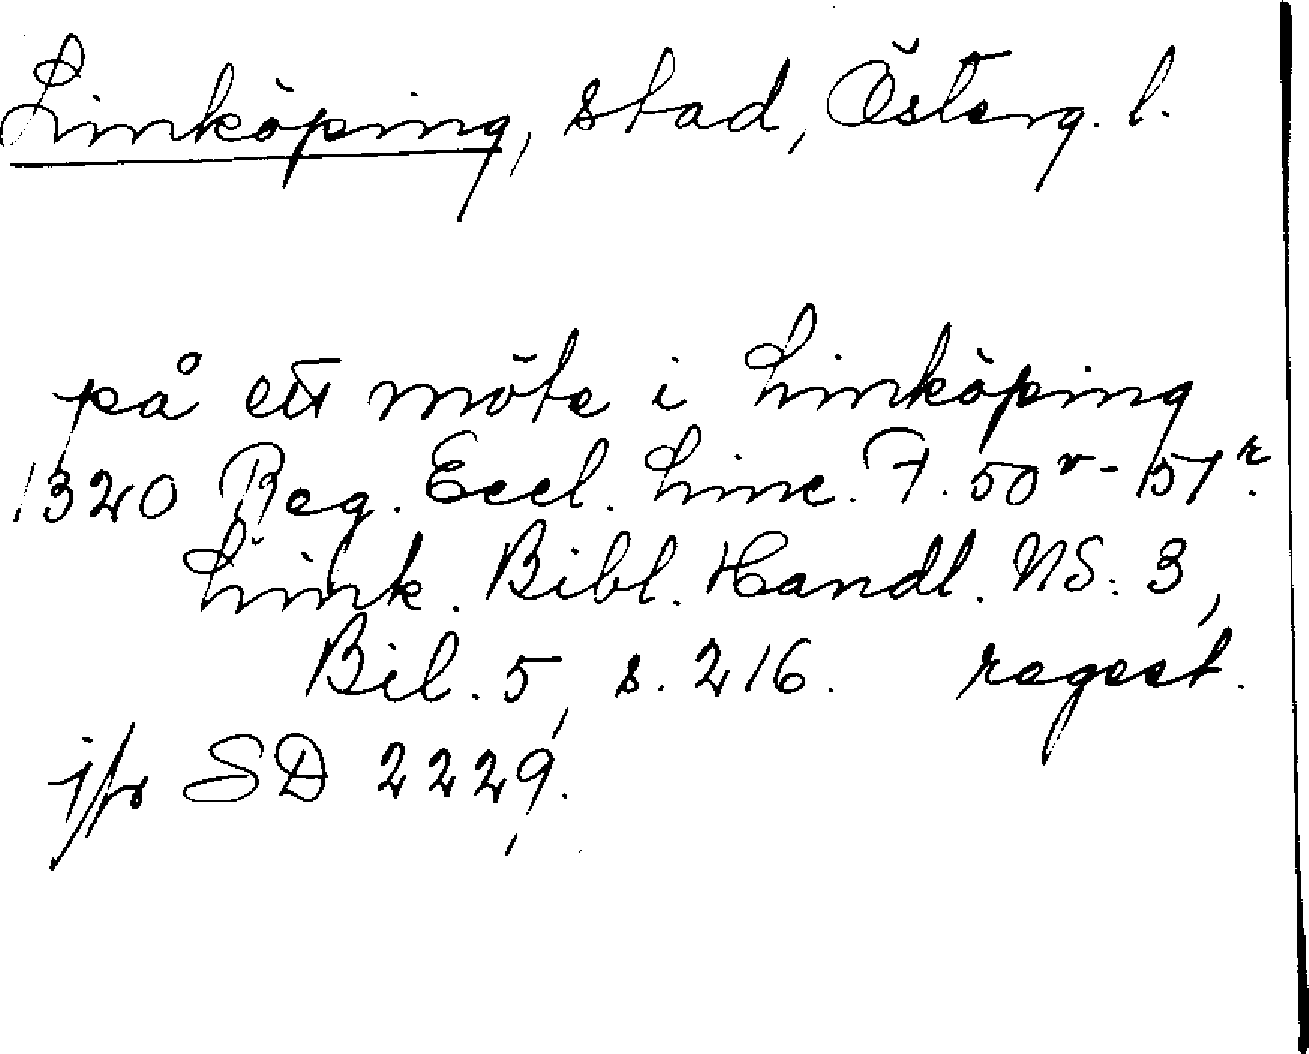 Linköping, stad, Österg. l.
på ett möte i Linköping
1320 Reg. Eccl. Linc. F. 50v-51r.
Link. Bibl. Handl. NS. 3,
Bil. 5, s. 216. regest.
jfr SD 2229.